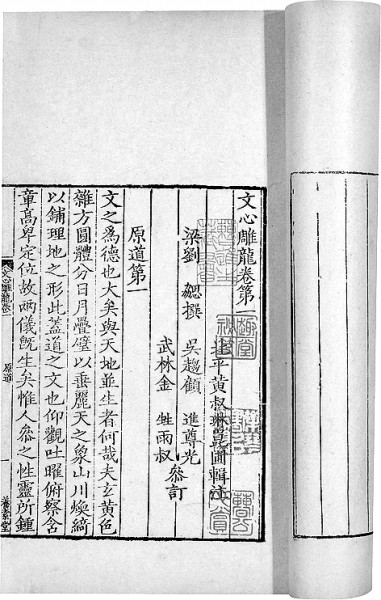 文心雕龍卷第一
北平黄叔琳崑圃輯注
梁劉 勰撰 吳趨顧 進尊光
武林金 甡雨叔
叅訂
原道第一
文之爲德也大矣與天地並生者何哉夫玄黄色
雜方圓體分日月疊璧以垂麗天之象山川煥綺
以鋪理地之形此葢道之文也仰觀吐曜俯察含
章高卑定位故兩儀既生矣惟人叅之性靈所鍾
文心雕龍卷一
原道
一
養素堂